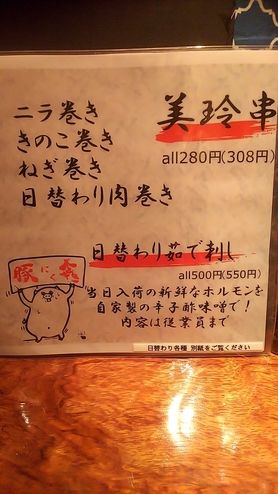 美玲串
ニラ巻き
きのこ巻き
ねぎ巻き
日替わり肉巻き
all280円(308円)
日替わり茹で刺し
all500円(550円)
当日入荷の新鮮なホルモンを
自家製の辛子酢味噌で！
内容は従業員まで
日替わり各種 別紙をご覧ください